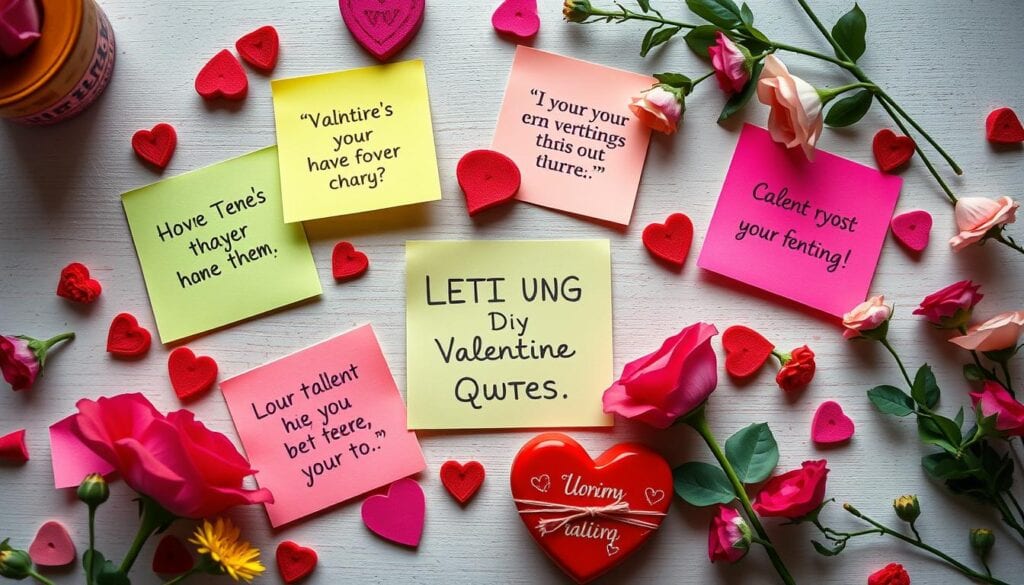 "Valntire's
your
have fover
chary?
"I your your
ern verttings
this out
thurre:."”
Hovve Tene's
thayer
hane them.
Calent ryost
your fenting!
LETI UNG
Diy
Valentine
QWTES.
Lour tallent
hie, you
bet teere,
your to..”